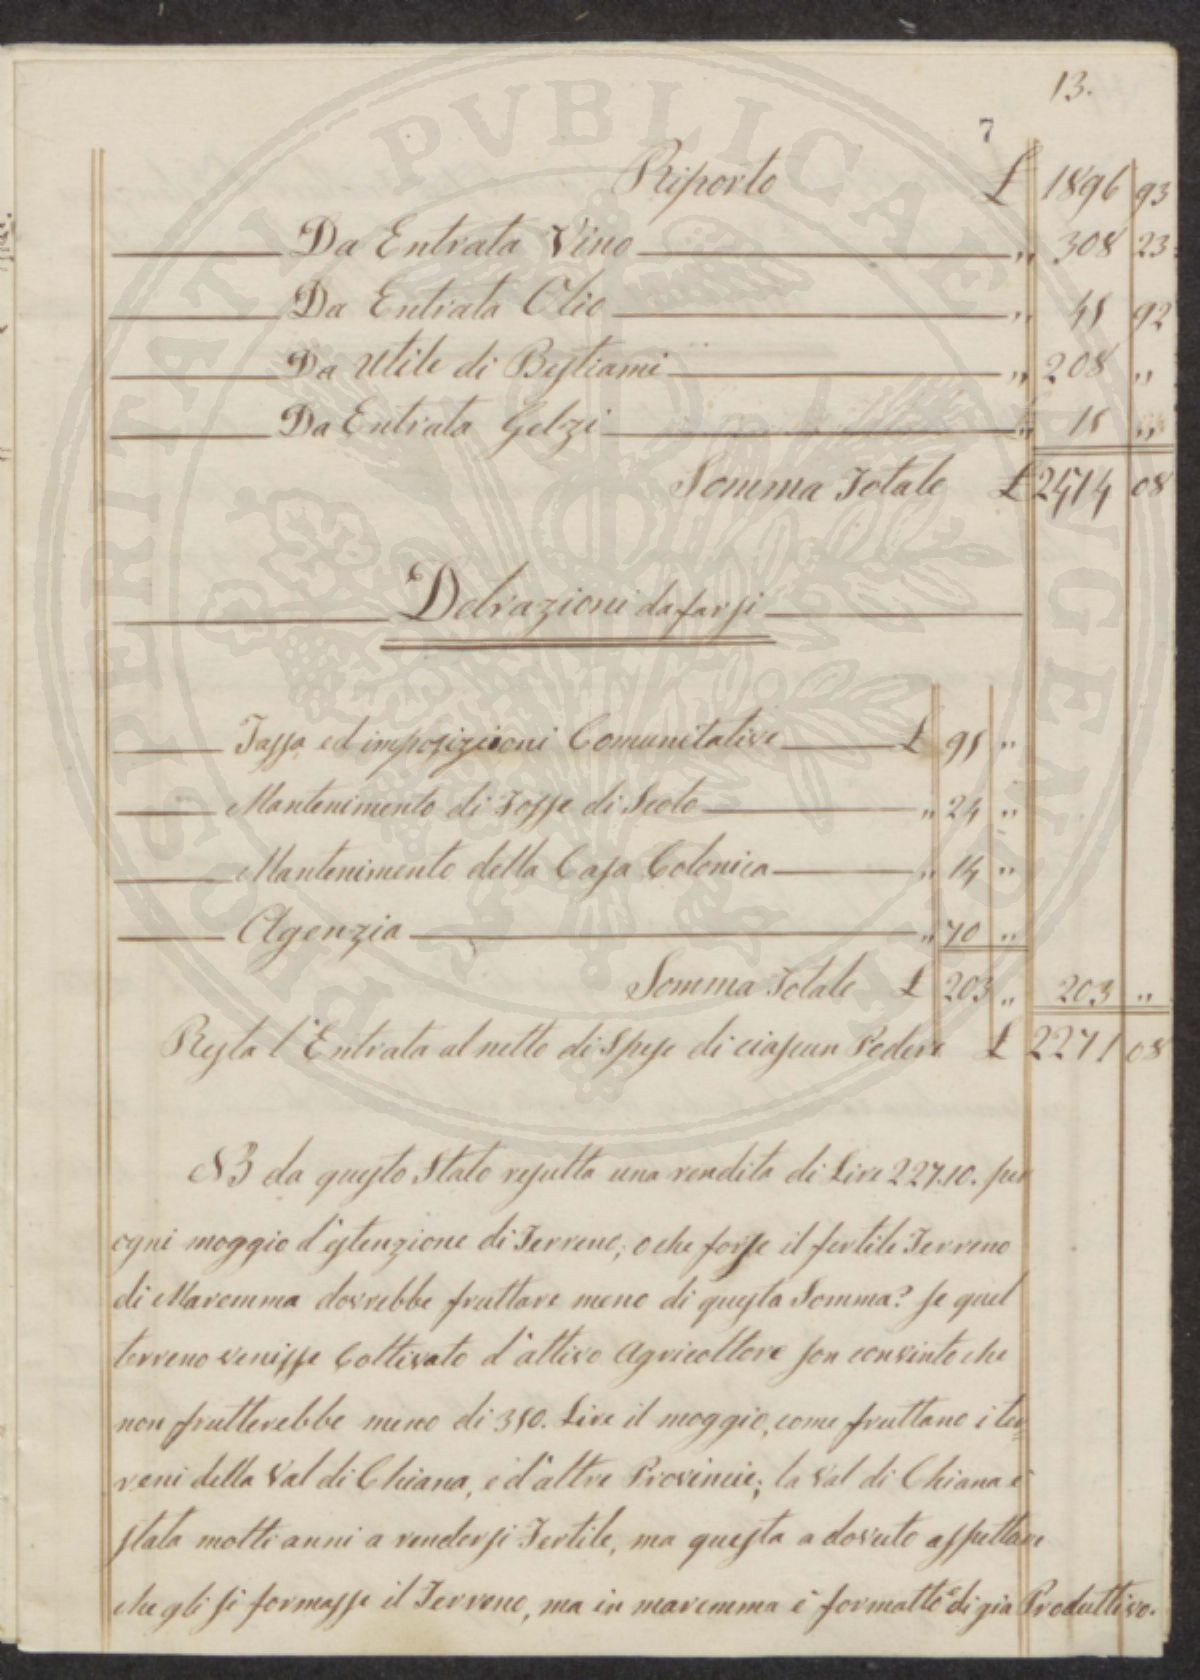 13.
7
Riporto £ 1896 93
Da Entrata Vino " 308 23
Da Entrata Olio " 45 92
Da Utile di Bestiami " 208 "
Da Entrata Gelzi " 15 "
Somma Totale £ 2474 08
Detrazioni da farsi
Tassa ed imposizioni Comunitative £ 95 "
Mantenimento di Fosse di Scolo " 24 "
Mantenimento della Casa Colonica " 14 "
Agenzia " 70 "
Somma Totale £ 203 " 203 "
Resta l'Entrata al netto di Spese di ciascun Podere £ 2271 08
NB da questo Stato resulta una rendita di Lire 227.10. per
ogni moggio d'estenzione di Terreno; o che forse il fertile Terreno
di Maremma dovrebbe fruttare meno di questa Somma? se quel
terreno venisse Coltivato d'attivo Agricoltore son convinto che
non frutterebbe meno di 350. Lire il moggio, come fruttano i ter=
reni della Val di Chiana, e d'altre Provincie; la Val di Chiana è
stata molti anni a rendersi Fertile, ma questa a dovuto aspettare
che gli si formasse il Terreno, ma in maremma è formatto e di gia Produttivo.
HOSPERITATI PVBLICAE AVGENDAE